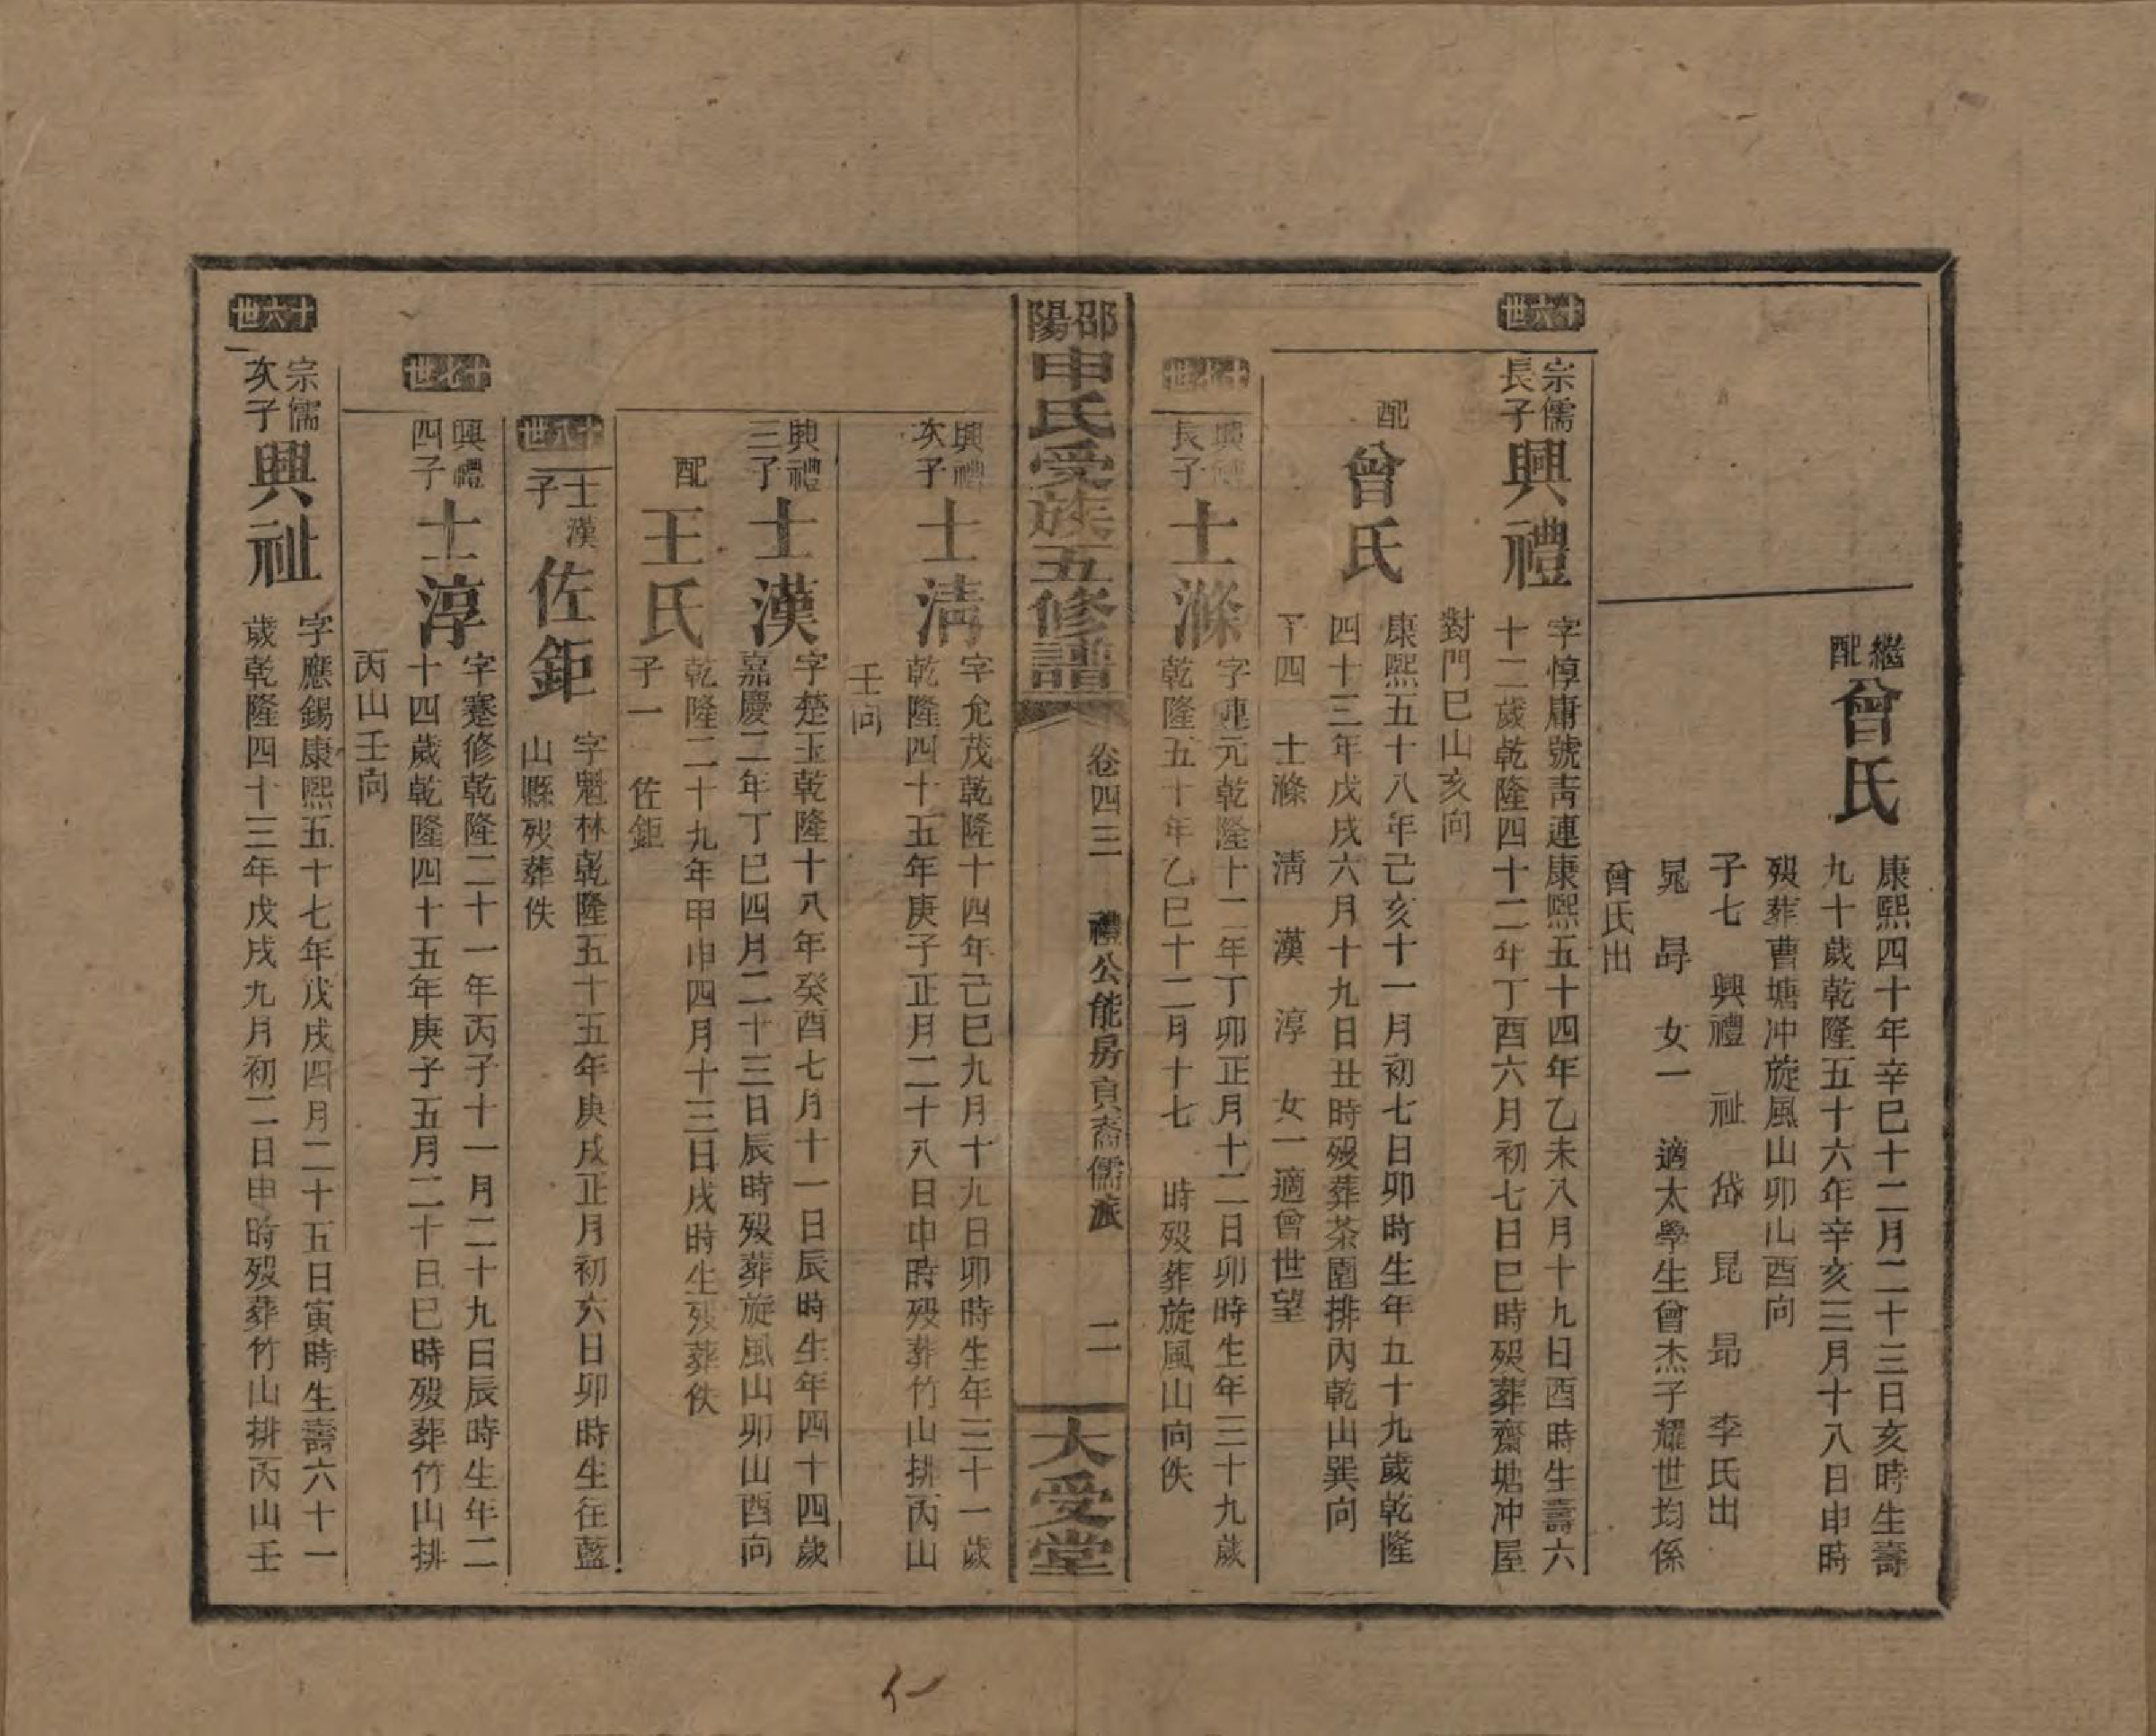 繼配 曾氏
康熙四十年辛巳十二月二十三日亥時生壽
九十歲乾隆五十六年辛亥三月十八日申時
歿葬曹塘冲旋風山卯山酉向
子七 興禮 祉 岱 昆 昂 李氏出
晁 曻 女一 適太學生曾杰子耀世均係
曾氏出
十六世
宗儒長子 興禮
字惇庸號青連康熙五十四年乙未八月十九日酉時生壽六
十二歲乾隆四十二年丁酉六月初七日巳時歿葬齋塘冲屋
對門巳山亥向
配 曾氏
康熙五十八年己亥十一月初七日卯時生年五十九歲乾隆
四十三年戊戌六月十九日丑時歿葬茶園排內乾山巽向
子四 士滌 淸 漢 淳 女一適曾世望
十七世
興禮長子 士滌
字連元乾隆十二年丁卯正月十二日卯時生年三十九歲
乾隆五十年乙巳十二月十七 時歿葬旋風山向佚
邵陽申氏受族五修譜
卷四三 禮公能房貞裔儒派 二
大受堂
興禮次子 士淸
字允茂乾隆十四年己巳九月十九日卯時生年三十一歲
乾隆四十五年庚子正月二十八日申時歿葬竹山排丙山
壬向
興禮三子 士漢
字楚玉乾隆十八年癸酉七月十一日辰時生年四十四歲
嘉慶二年丁巳四月二十三日辰時歿葬旋風山卯山酉向
配 王氏
乾隆二十九年甲申四月十三日戌時生歿葬佚
子一 佐鉅
十八世
士漢子 佐鉅
字魁林乾隆五十五年庚戌正月初六日卯時生往藍
山縣歿葬佚
十七世
興禮四子 士淳
字蹇修乾隆二十一年丙子十一月二十九日辰時生年二
十四歲乾隆四十五年庚子五月二十日巳時歿葬竹山排
丙山壬向
十六世
宗儒次子 興祉
字應錫康熙五十七年戊戌四月二十五日寅時生壽六十一
歲乾隆四十三年戊戌九月初二日申時歿葬竹山排丙山壬